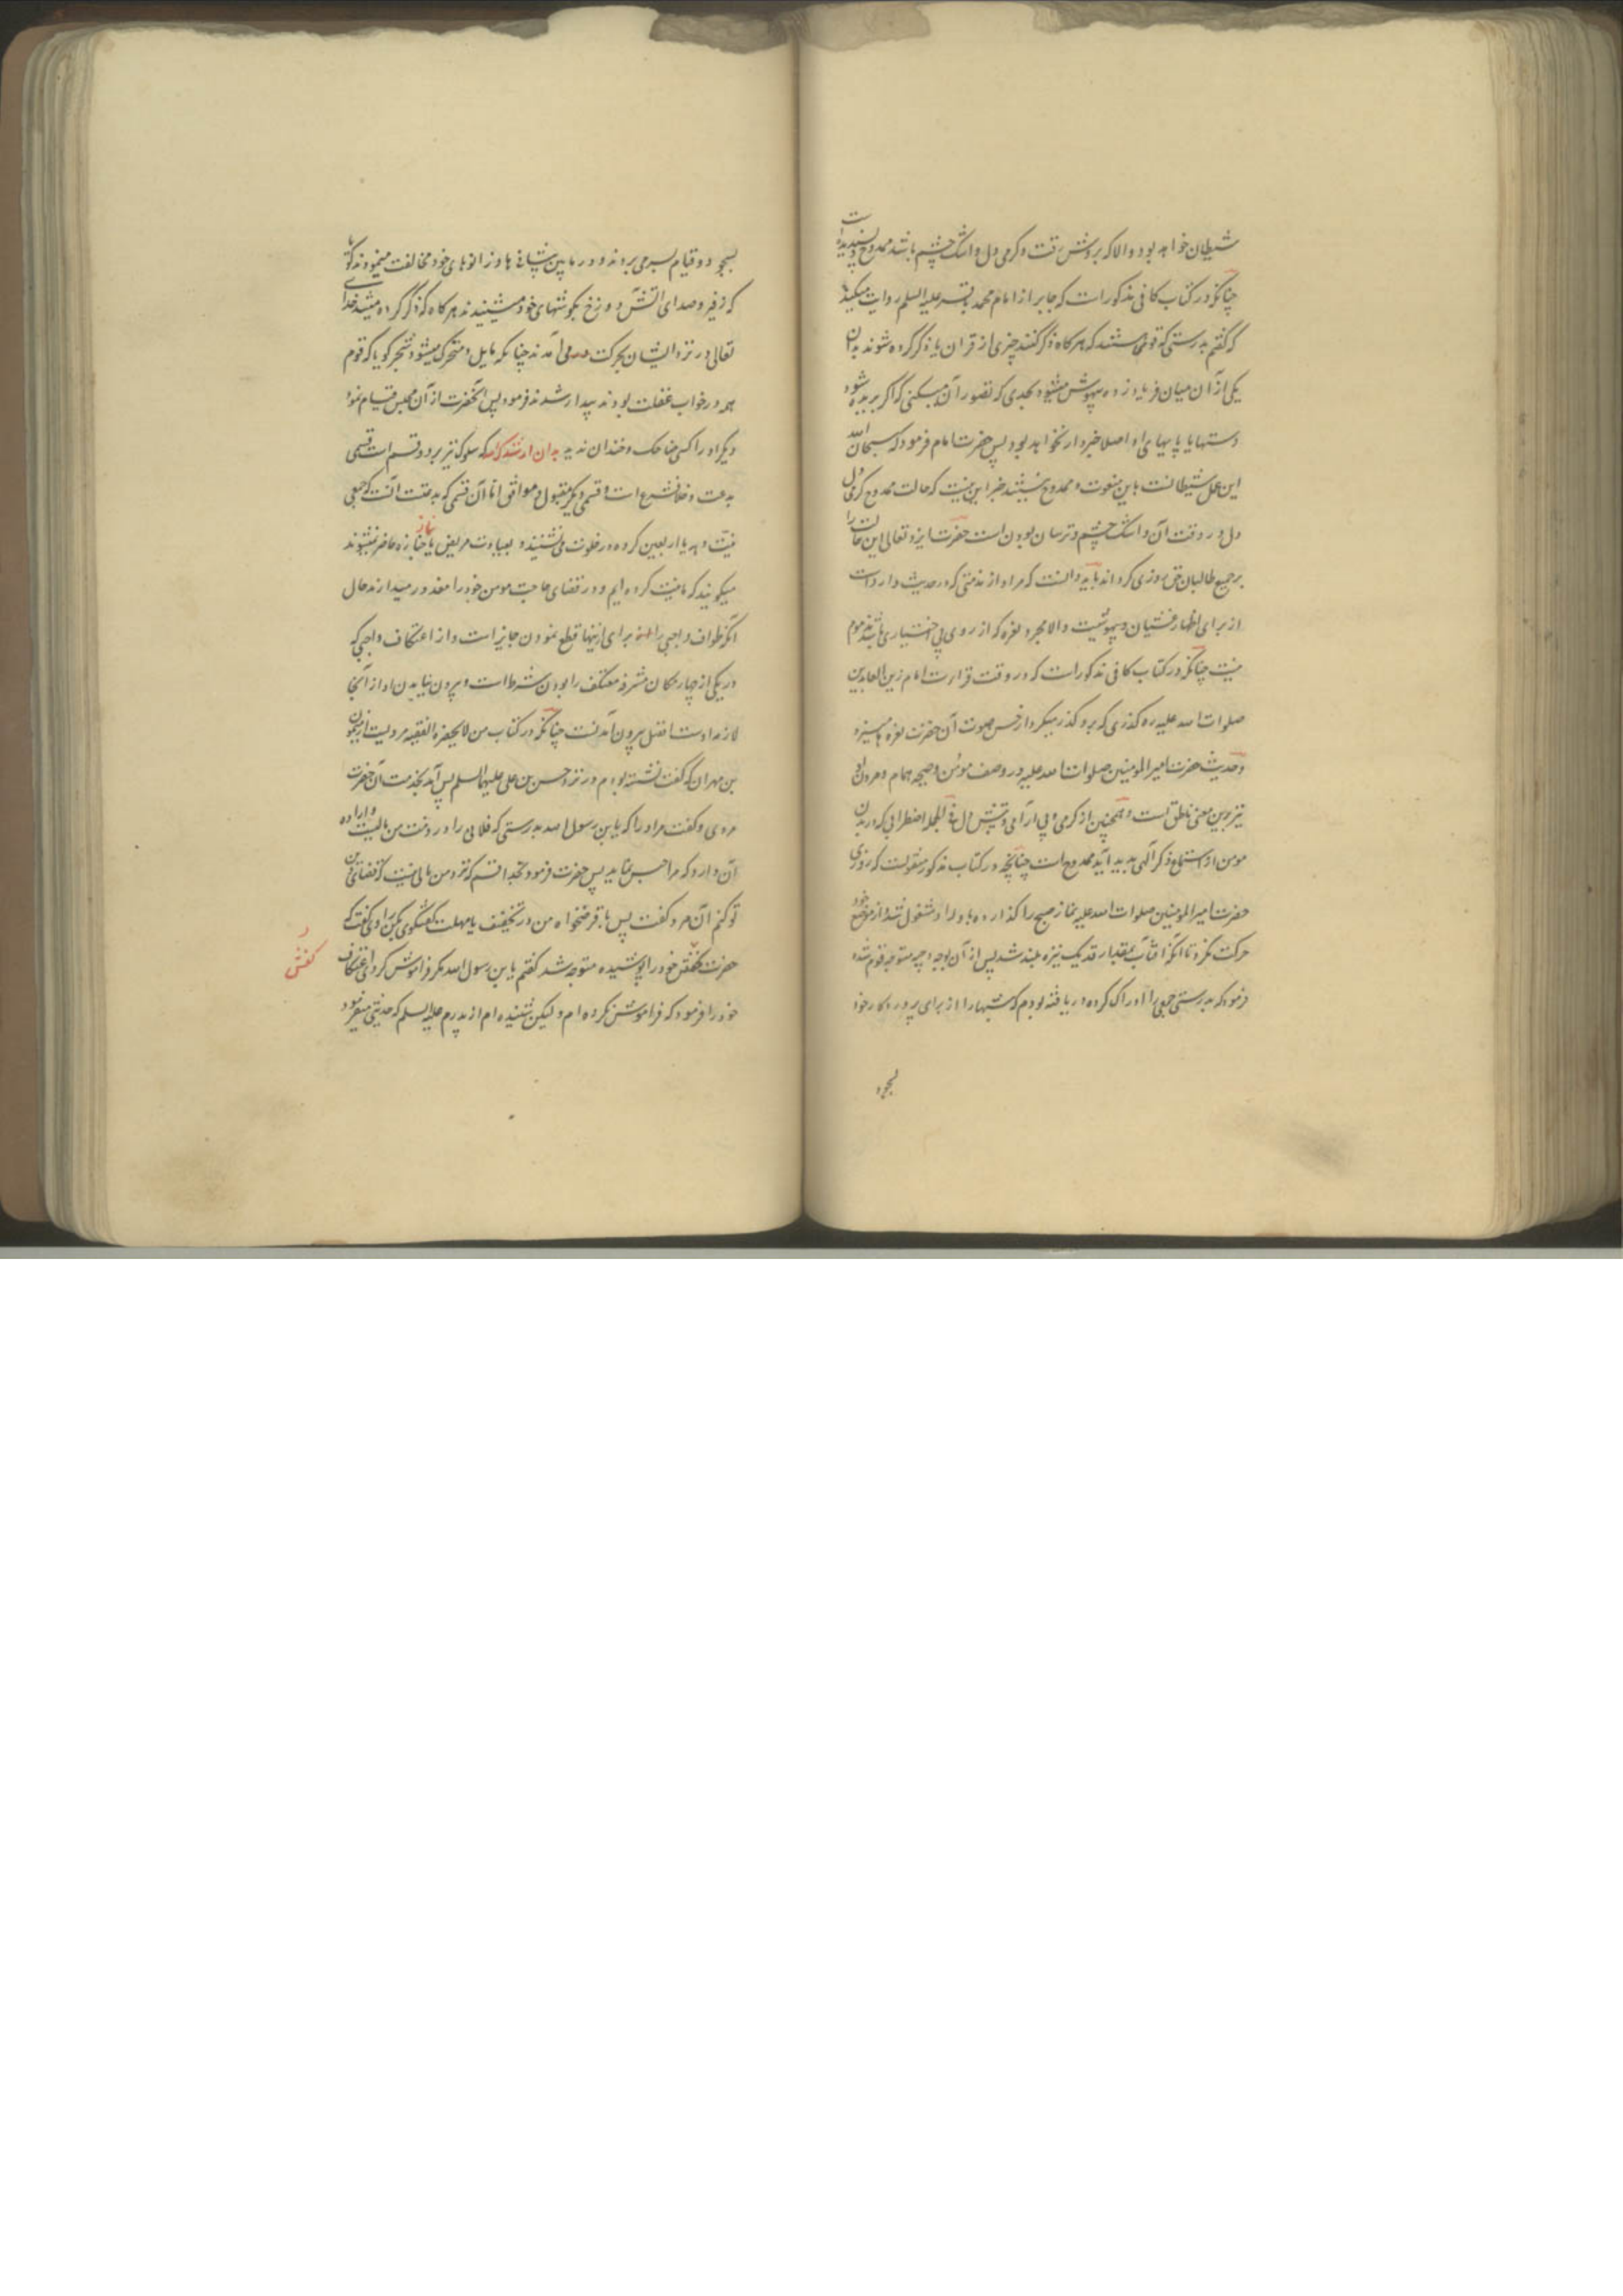 شیطان خواهد بود و الا که بروش رقت و کرمی دل و اشک چشم باشد ممدوح و پسندیده است
چنانکه در کتاب کافی مذکور است که جابر از امام محمد باقر علیه السلم روایت میکند
که گفتم بدرستی که قومی هستند که هر کاه ذکر کنند چیزی از قران یا ذکر کرده شوند بدان
یکی از آن میان فریاد زده بیهوش میشود بحدی که تصور آن میکنی که اکر بریده شود
دستها یا پایهای او اصلا خبردار نخواهد بود پس حضرت امام فرمود که سبحان الله
این عمل شیطانست باین منعوت و ممدوح نیستند جز این نیست که حالت ممدوح کرمی دل
دل و رقت آن و اشک چشم و ترسان بودن است حضرت ایزد تعالی این حالت را
بر جمیع طالبان حق روزی کرداند باید دانست که مراد از مذمتی که در حدیث وارد است
از برای اظهار غشیان و بیهوشیست و الا مجرد نعره که از روی بی اختیاری باشد مذموم
نیست چنانکه در کتاب کافی مذکور است که در وقت قراءت امام زین العابدین
صلوات الله علیه ره کذری که برو کذر میکرد از حسن صوت آن حضرت نعره میزد
و حدیث حضرت امیر المومنین صلوات الله علیه در وصف مومن و صیحه همام و مردن او
نیز برین معنی ناطق است و همچنین از کرمی و بی آرامی و تپش دل فی الجمله اضطرابی که در بدن
مومن از استماع ذکر آلهی پدید آید ممدوح است چنانچه در کتاب مذکور منقولست که روزی
حضرت امیر المومنین صلوات الله علیه نماز صبح را کذارده باوراد مشغول شد از موضع خود
حرکت نکرد تا انکه آفتاب بمقدار قد یک نیزه بلند شد پس از آن بوجه وجیه متوجه قوم شده
فرمود که بدرستی جمعی را ادراک کرده دریافته بودم که شبها را از برای پروردکار خود
بسجود
بسجود و قیام بسر می بردند و در مابین پیشانیها و زانوهای خود مخالفت مینمودند کویا
که زفیر و صدای آتش دوزخ بکوشهای خود میشنیدند هر کاه که ذکر کرده میشد خدای
تعالی در نزد ایشان بحرکت می آمدند چنانکه مایل و متحرک میشود شجر کویا که قوم
همه در خواب غفلت بودند بیدار شدند فرمود پس آنحضرت از آن مجلس قیام نمود
دیکر او را کسی ضاحک و خندان ندید بدان ارشدک الله که سلوک نیز بر دو قسم است قسمی
بدعت و خلاف شرع است و قسمی دیکر مقبول و موافق اما آن قسمی که بدعتست آنست که جمعی
نیت دهه یا اربعین کرده در خلوت می نشینند و بعیادت مریض یا نماز جنازه حاضر نمیشوند
میکویند که ما نیت کرده ایم و در قضای حاجت مومن خود را معذور میدارند حال
آنکه طواف واجبی را برای اینها قطع نمودن جایز است و از اعتکاف واجبی که
در یکی از چهار مکان مشرفه معتکف را بودن شرط است و بیرون نیاییدن او از آنجا
لازم اوست افضل بیرون آمدنست چنانکه در کتاب من لا یحضره الفقیه مرویست از میمون
بن مهران که کفت نشسته بودم در نزد حسن بن علی علیهما السلم پس آمد بخدمت آن حضرت
مردی و کفت مر او را که یا بن رسول الله بدرستی که فلانی را در ذمت من مالیست و اراده
آن دارد که مرا حبس نماید پس حضرت فرمود بخدا قسم که نزد من مالی نیست که قضای دین
تو کنم آن مرد کفت پس با قرضخواه من در تخفیف یا مهلت کفتکوی بکن راوی کفت که
حضرت کفش خود را پوشیده متوجه شد کفتم یا بن رسول الله مکر فراموش کردی اعتکاف
خود را فرمود که فراموش نکرده ام و لیکن شنیده ام از پدرم علیه السلم که حدیثی میفرمود
کفش